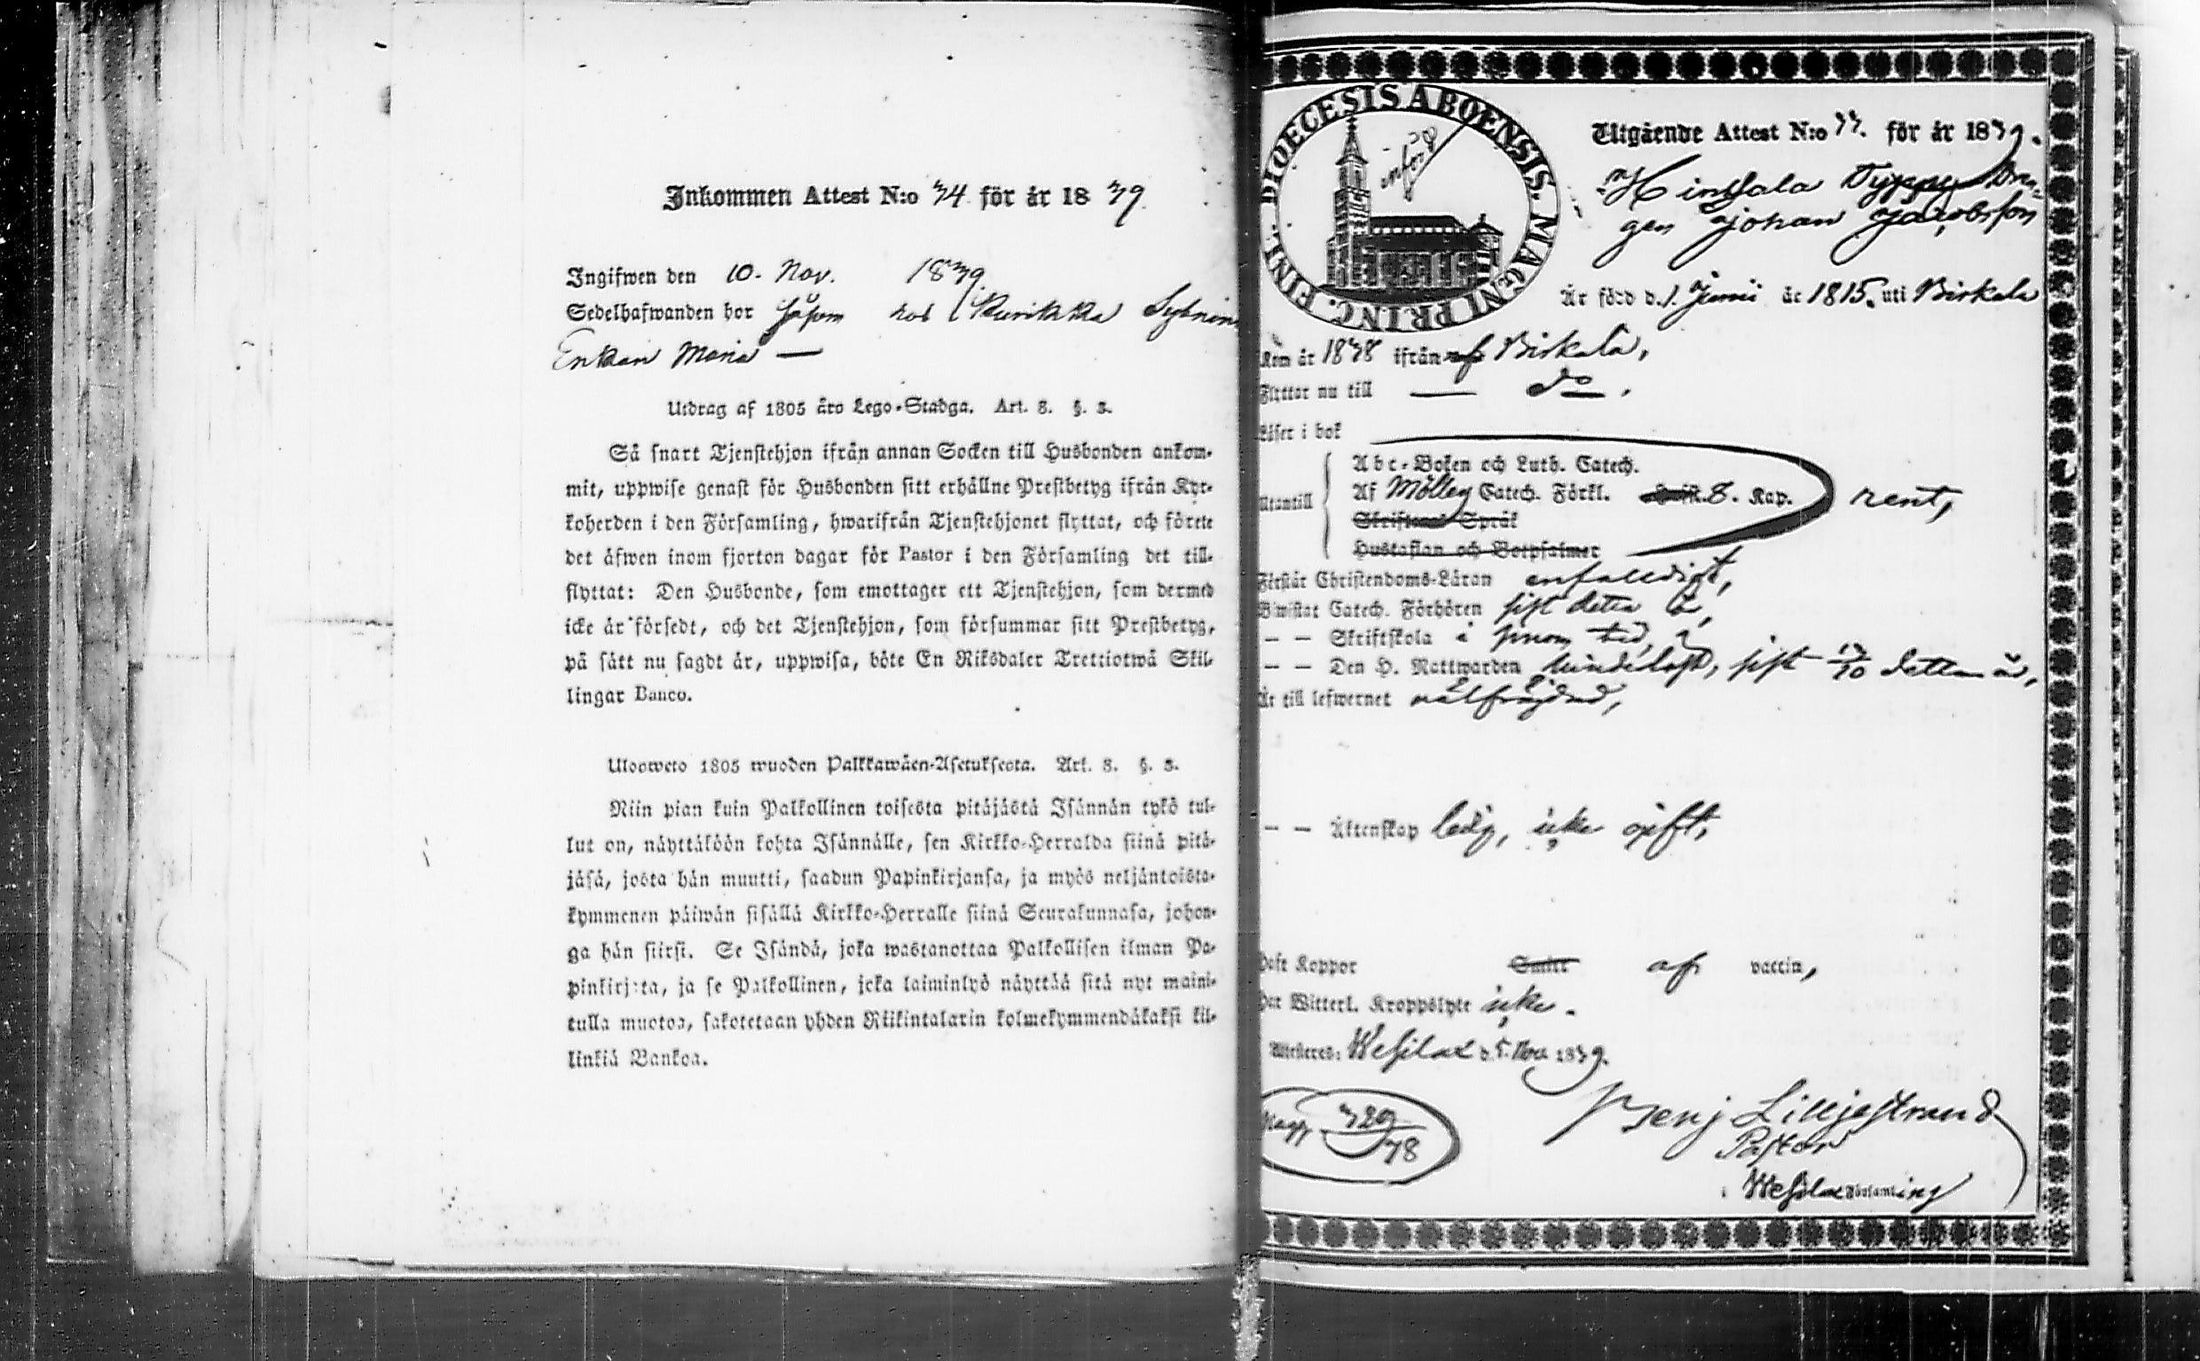 Inkommen Attest N:o 34 för år 1839
Ingifwen den 10. Nov. 1839
Sedelhafwanden bor såsom hos Kurikka Sytning
Enkan Maria —
Utdrag af 1805 års Lego-Stadga. Art. 8. §. 3.
Så snart Tjenstehjon ifrån annan Socken till Husbonden ankom-
mit, uppwise genast för Husbonden sitt erhållne Prestbetyg ifrån Kyr-
koherden i den Församling, hwarifrån Tjenstehjonet flyttat, och förete
det äfwen inom fjorton dagar för Pastor i den Församling det till-
flyttat: Den Husbonde, som emottager ett Tjenstehjon, som dermed
icke är försedt, och det Tjenstehjon, som försummar sitt Prestbetyg,
på sätt nu sagdt är, uppwisa, böte En Riksdaler Trettiotwå Skil-
lingar Banco.
Ulosweto 1805 wuoden Palkkawäen-Asetuksesta. Art. 8. §. 3.
Niin pian kuin Palkollinen toisesta pitäjästä Isännän tykö tul-
lut on, näyttäköön kohta Isännälle, sen Kirkko-Herralda siinä pitä-
jäsä, josta hän muutti, saadun Papinkirjansa, ja myös neljäntoista-
kymmenen päiwän sisällä Kirkko-Herralle siinä Seurakunnasa, johon-
ga hän siirsi. Se Isändä, joka wastanottaa Palkollisen ilman Pa-
pinkirjata, ja se Palkollinen, joka laiminlyö näyttää sitä nyt maini-
tulla muotoa, sakotetaan yhden Riikintalarin kolmekymmendäkaksi kil-
linkiä Bankoa.
DIOECESIS ABOENSIS. MAGNI PRINC. FINL.
införd
Utgående Attest N:o 77. för år 1839.
Hinsala Dräng-
gen Johan Jacobsson
Är född d. 1. Junii år 1815. uti Birkala
Kom år 1838 ifrån Birkala,
Flyttar nu till — do.
Läser i bok
Abc-Boken och Luth. Catech.
Utantill Af Möller Catech. Förkl. 8. Kap. rent,
Skriftenes Språk
Hustaflan och Botpsalmer
Förstår Christendoms-Läran enfaldigt,
Biwistat Catech. Förhören sist detta år,
— — Skriftskola i sinom tid,
— — Den H. Nattwarden sist detta år,
Är till lefwernet wälfrägdad,
— — Äktenskap ledig, icke gift,
Haft Koppor Smitt af vaccin,
Har Witterl. Kroppslyte icke.
Attesteres: Wesilax d. 5. Nov. 1839.
Benj Lilljestrand
Pastor
i Wesilax Församling